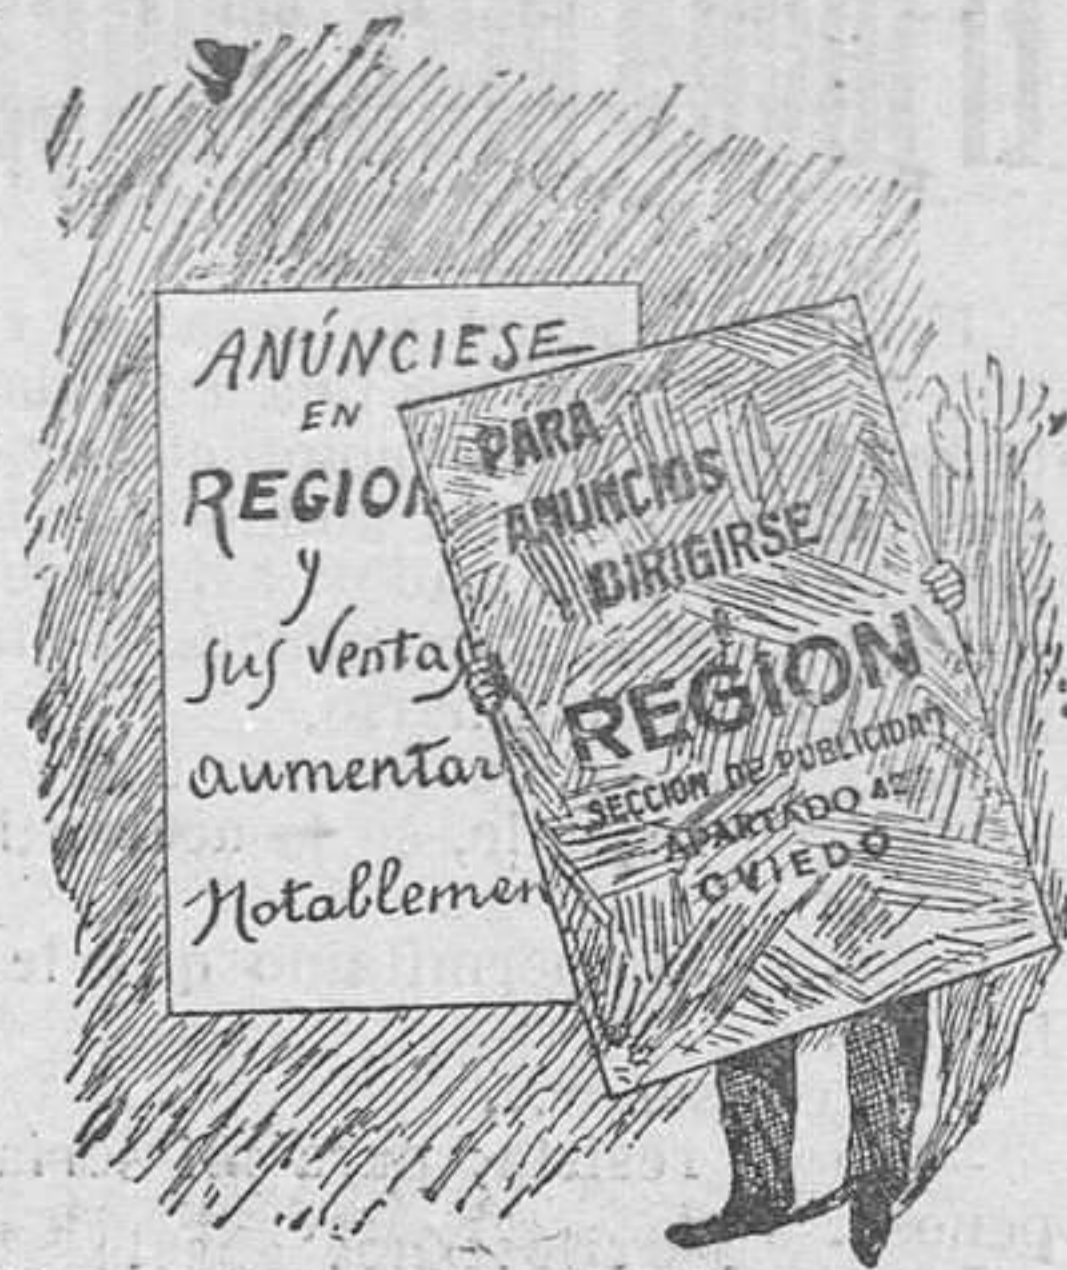 ANÚNCIESE
EN
REGION
y
sus ventas
aumentar
Notablemen
PARA
ANUNCIOS
DIRIGIRSE
REGION
SECCION DE PUBLICIDAD
APARTADO
OVIEDO